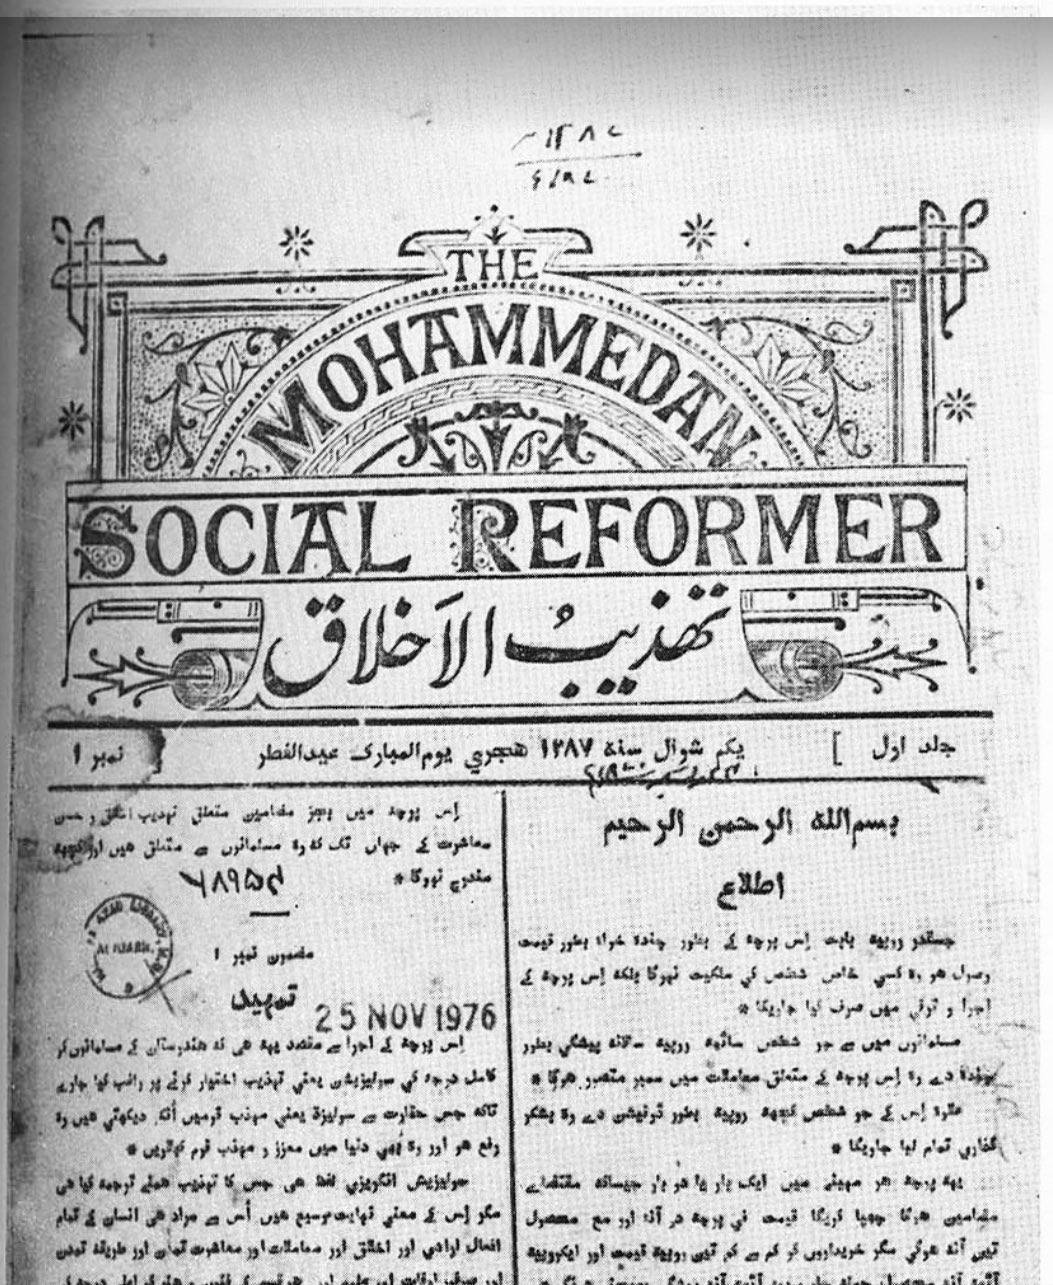 ۱۲۸۷
THE
MOHAMMEDAN
SOCIAL REFORMER
تہذیبُ الاَخلاق
جلد اول [ یکم شوال سنہ ۱۲۸۷ هجري یوم‌المبارک عیدالفطر ] نمبر ۱
بسم‌الله الرحمن الرحیم
اطلاع
جسقدر روپیه بابت اِس پرچه کے بطور چنده خواه بطور قیمت
وصول هو وه کسي خاص شخص کي ملکیت نہوگا بلکه اِس پرچه کے
اجرا و ترقي میں صرف کیا جاویگا *
مسلمانوں میں سے جو شخص ساٹهه روپیه سالانه پیشگي بطور
چنده دے وه اِس پرچه کے متعلق معاملات میں ممبر متصور هوگا *
علاوه اِس کے جو شخص کچهه روپیه بطور ڈونیشن دے وه بشکر
گذاري تمام لیا جاویگا *
یهه پرچه هر مهینے میں ایک بار یا دو بار جیساکه مقتضاے
مضامین هوگا چهپا کریگا قیمت في پرچه آنه اور مع محصول
تین آنه هوگي مگر خریداروں کو کم سے کم تین روپیه قیمت اور ایکروپیه
اِس پرچه میں بجز مضامین متعلق تهذیب اخلاق و حسن
معاشرت کے جہاں تک که وه مسلمانوں سے متعلق هیں اور کچهه
مندرج نهوگا *
۶۸۹۵۲
AZAD LIBRARY
ALIGARH
مضمون نمبر ۱
تمہید
25 NOV 1976
اِس پرچه کے اجرا سے مقصد یهه هی که هندوستان کے مسلمانوں کو
کامل درجه کي سولیزیشن یعني تہذیب اختیار کرنے پر راغب کیا جاوے
تاکه جس حقارت سے سولیزڈ یعني مہذب قومیں اُنکو دیکهتي هیں وه
رفع هو اور وه بهي دنیا میں معزز و مہذب قوم کہلاویں *
سولیزیشن انگریزي لفظ هی جس کا تہذیب همنے ترجمه کیا هی
مگر اِس کے معني نہایت وسیع هیں اُس سے مراد هی انسان کے تمام
افعال ارادي اور اخلاق اور معاملات اور معاشرت تمدن اور طریقه تمدن